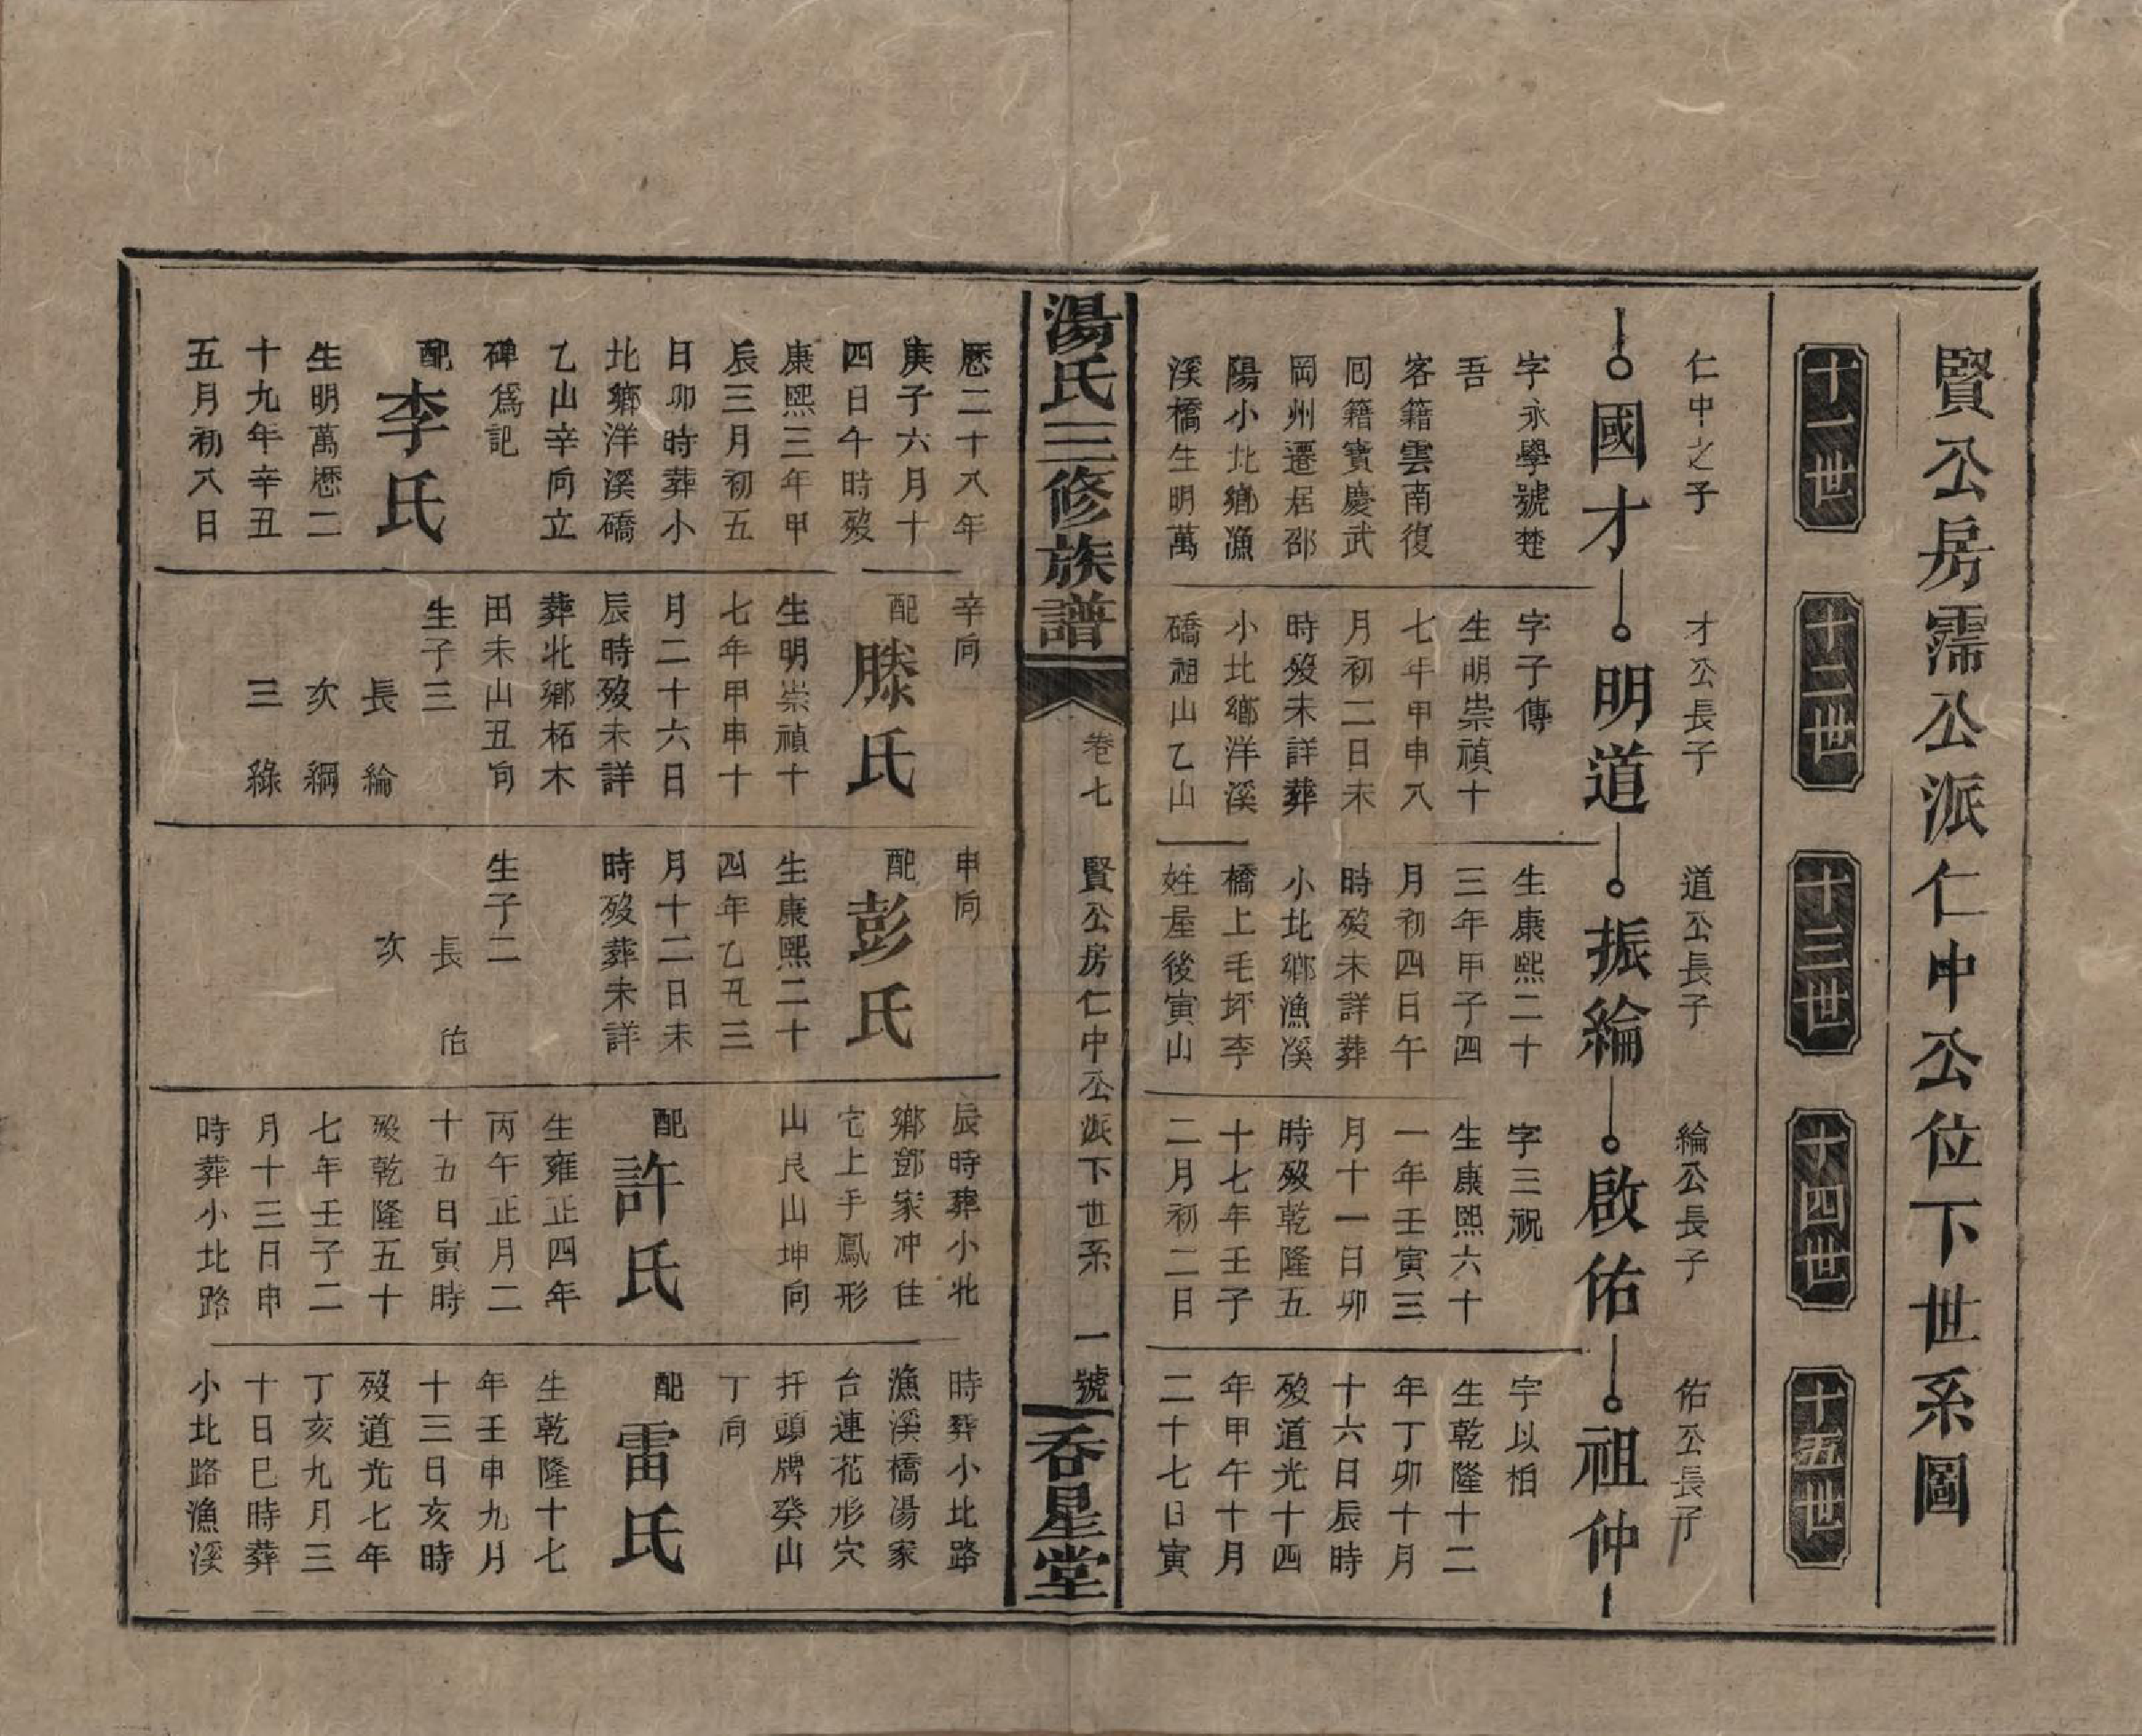 賢公房霈公派仁中公位下世系圖
十一世
十二世
十三世
十四世
十五世
仁中之子
國才
字永學號楚
吾
客籍雲南復
囘籍寳慶武
岡州遷居邵
陽小北鄉漁
溪橋生明萬
才公長子
明道
字子傳
生明崇禎十
七年甲申八
月初二日未
時歿未詳葬
小北鄉洋溪
礄祖山乙山
道公長子
振綸
生康熙二十
三年甲子四
月初四日午
時歿未詳葬
小北鄉漁溪
橋上毛坪李
姓屋後寅山
綸公長子
啟佑
字三祝
生康熙六十
一年壬寅三
月十一日卯
時歿乾隆五
十七年壬子
二月初二日
佑公長子
祖仲
字以栢
生乾隆十二
年丁卯十月
十六日辰時
歿道光十四
年甲午十月
二十七日寅
湯氏三修族譜
卷七
賢公房仁中公派下世系
一號
吞星堂
厯二十八年
庚子六月十
四日午時歿
康熙三年甲
辰三月初五
日卯時葬小
北鄉洋溪礄
乙山辛向立
碑為記
配
李氏
生明萬厯二
十九年辛丑
五月初八日
辛向
配
滕氏
生明崇禎十
七年甲申十
月二十六日
辰時歿未詳
葬北鄉柘木
田未山丑向
生子三
長綸
次綱
三綠
申向
配
彭氏
生康熙二十
四年乙丑三
月十二日未
時歿葬未詳
生子二
長佑
次
辰時葬小北
鄉鄧家冲住
宅上手鳳形
山艮山坤向
配
許氏
生雍正四年
丙午正月二
十五日寅時
歿乾隆五十
七年壬子二
月十三日申
時葬小北路
時葬小北路
漁溪橋湯家
台連花形穴
扦頭牌癸山
丁向
配
雷氏
生乾隆十七
年壬申九月
十三日亥時
歿道光七年
丁亥九月三
十日巳時葬
小北路漁溪